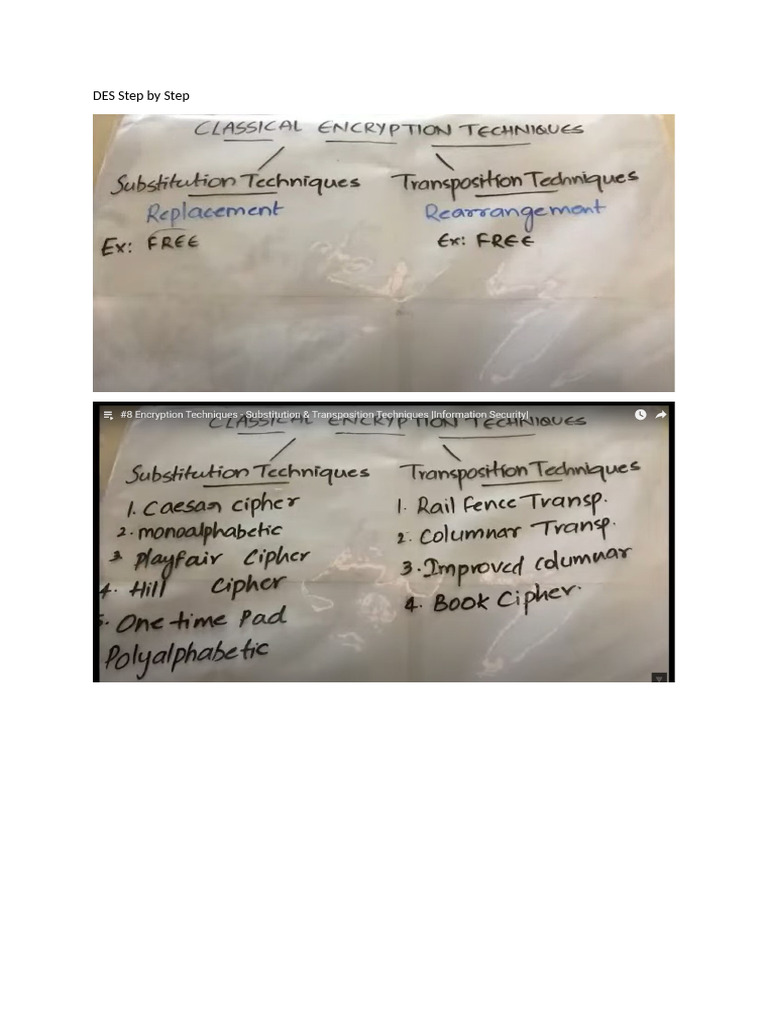 DES Step by Step
CLASSICAL ENCRYPTION TECHNIQUES
Substitution Techniques Transposition Techniques
Replacement Rearrangement
Ex: FREE Ex: FREE
#8 Encryption Techniques - Substitution & Transposition Techniques |Information Security|
CLASSICAL ENCRYPTION TECHNIQUES
Substitution Techniques Transposition Techniques
1. Caesar cipher 1. Rail Fence Transp.
2. monoalphabetic 2. Columnar Transp.
3 Playfair Cipher 3. Improved columnar
4. Hill Cipher 4. Book Cipher.
5. One time Pad
Polyalphabetic